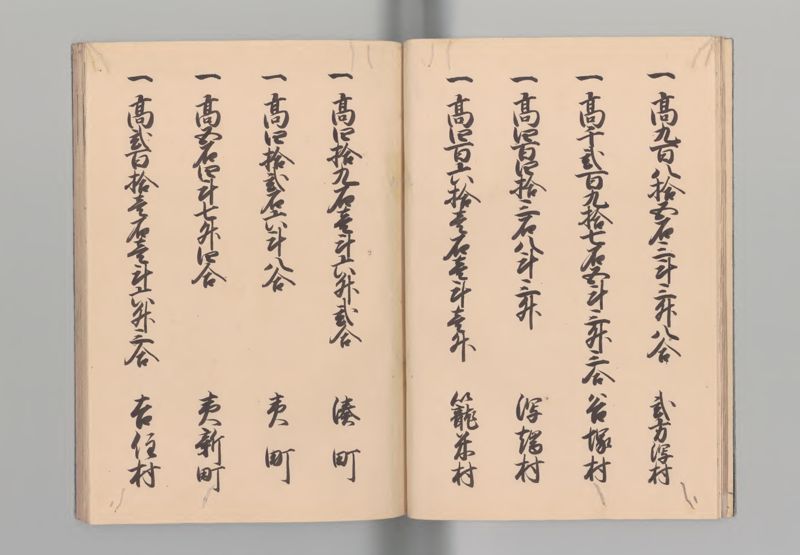 一高九百八拾五石三斗三升八合 貳方澤村
一高千貳百九拾七石五斗三升三合 谷塚村
一高四百四拾三石八斗三升 澤端村
一高四百六拾壱石壱斗壱升 籠米村
一高四拾九石壱斗六升貳合 湊町
一高四拾貳石六斗八合 夷町
一高五石四斗七升四合 夷新町
一高貳百拾壱石壱斗六升三合 吉住村